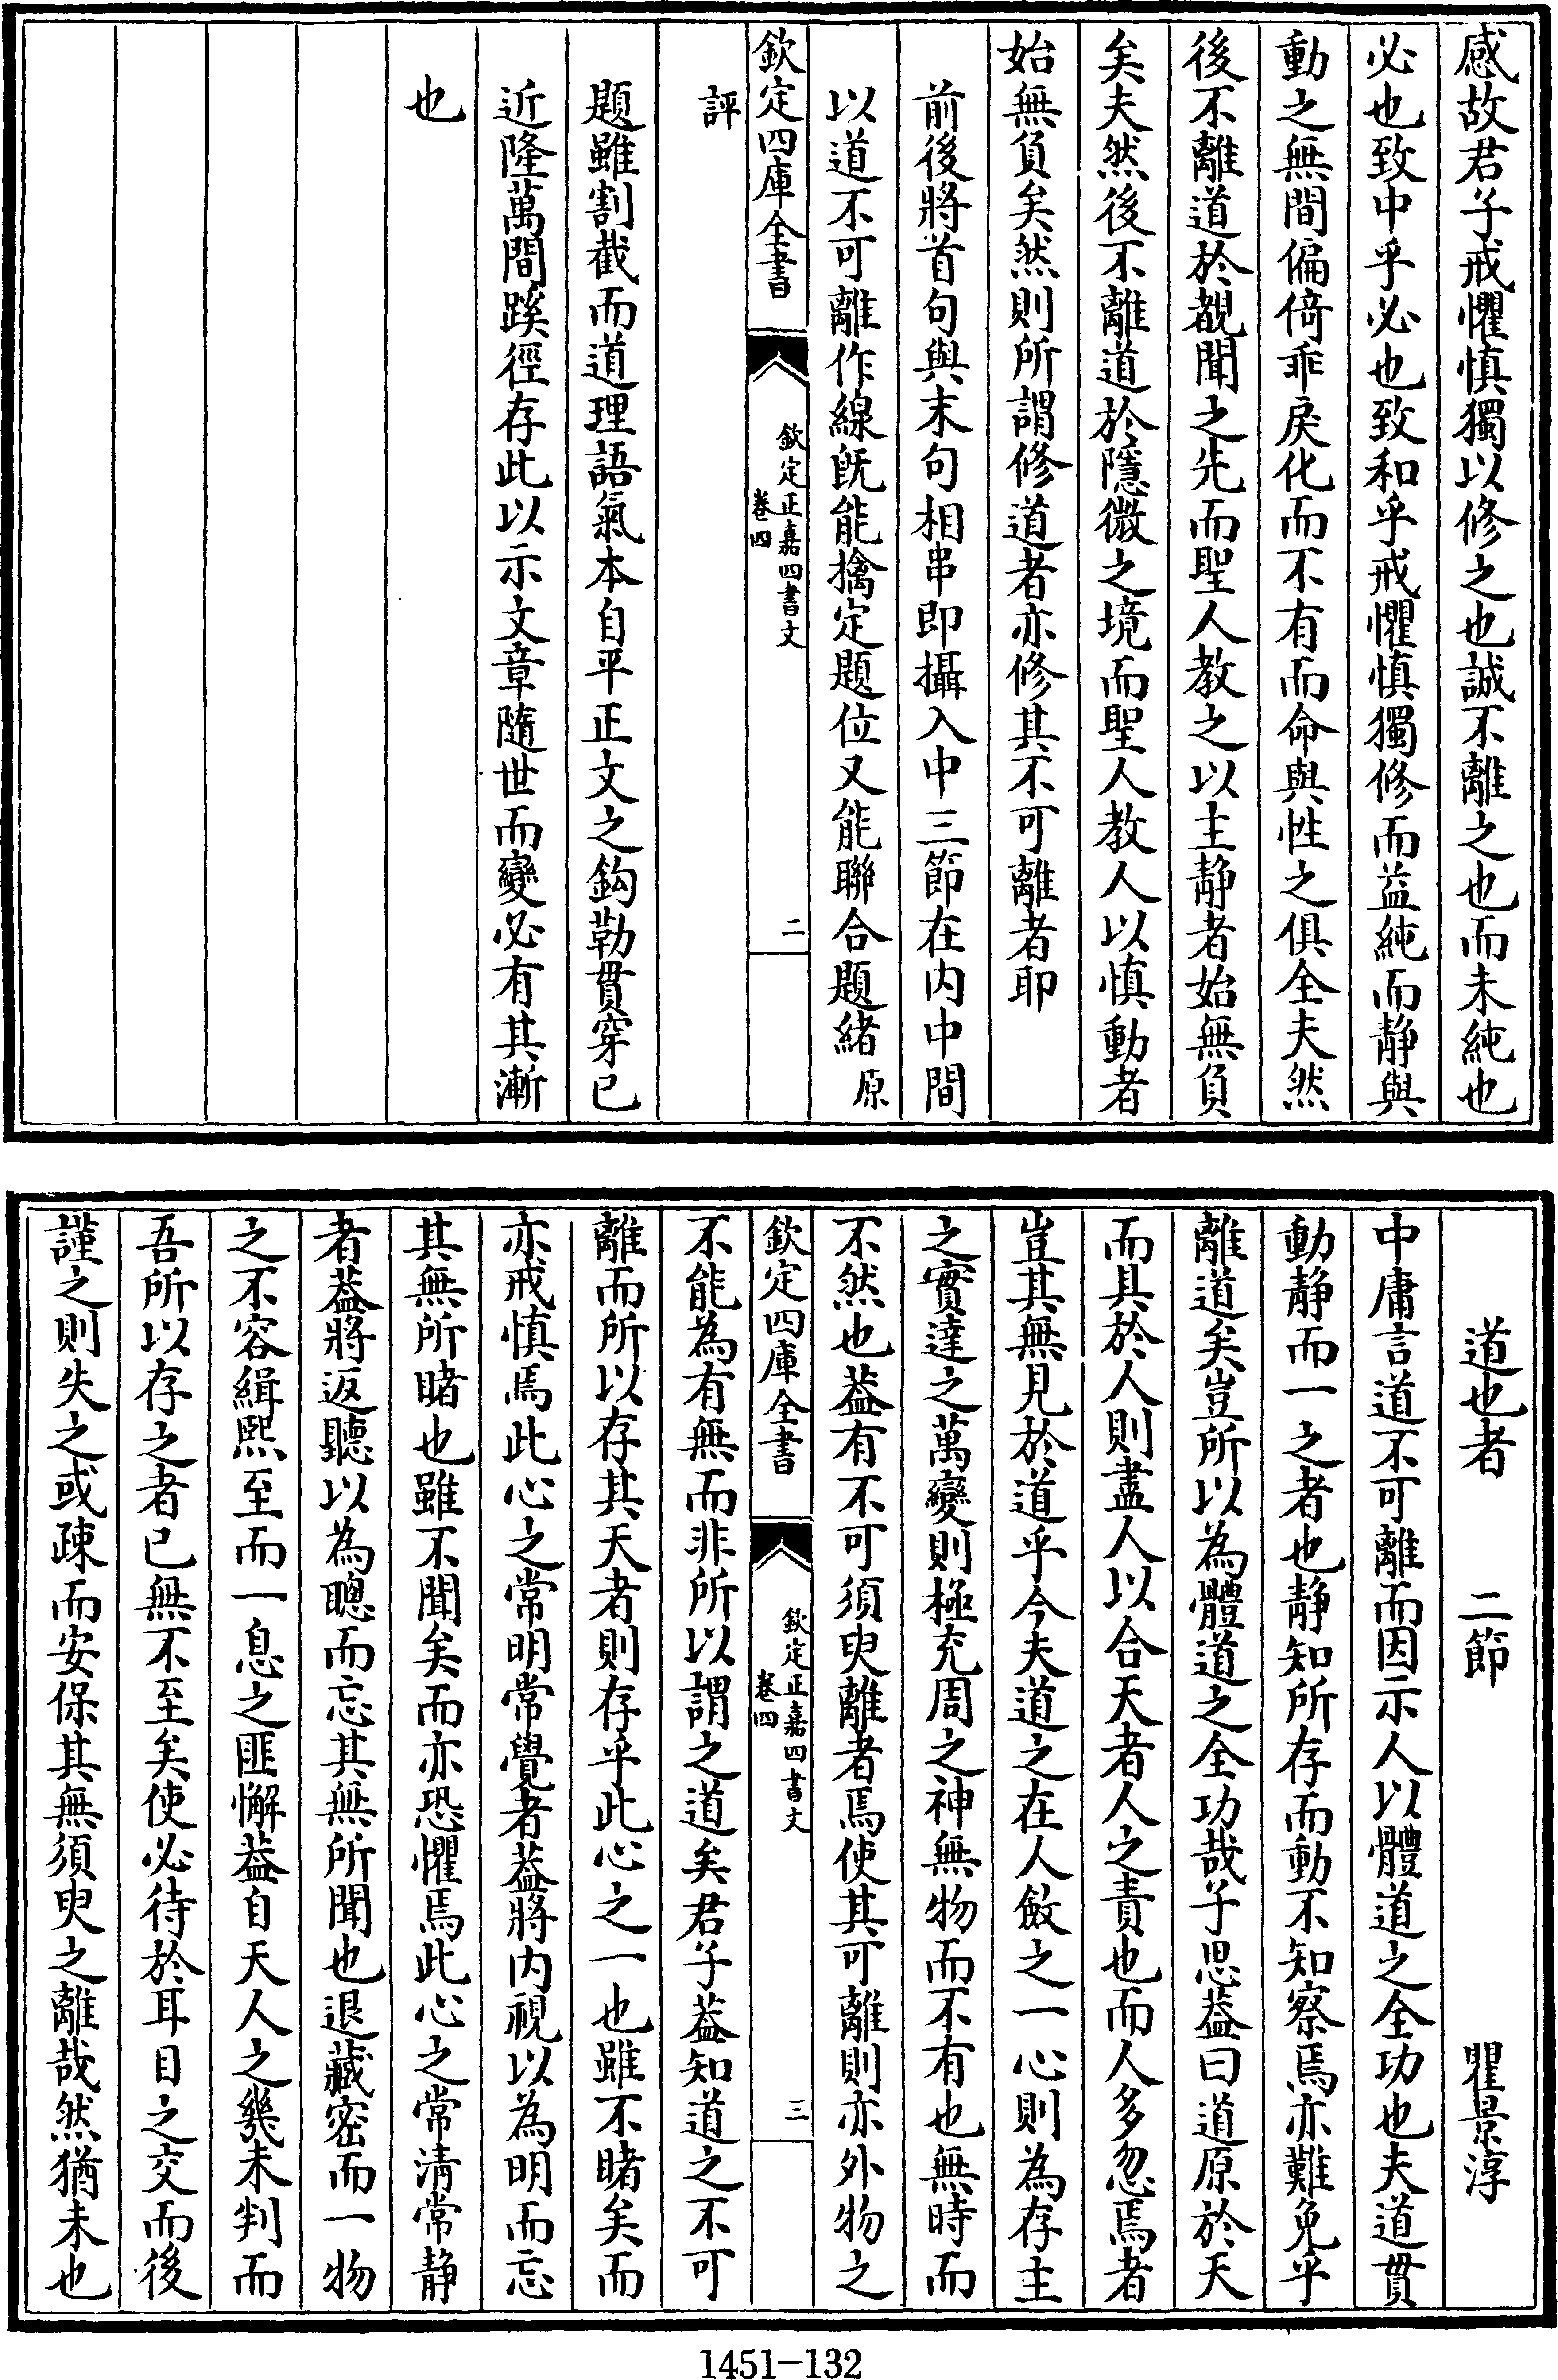 感故君子戒懼慎獨以修之也誠不離之也而未純也
必也致中乎必也致和乎戒懼慎獨修而益純而静與
動之無間偏倚乖戾化而不有而命與性之俱全夫然
後不離道於覩聞之先而聖人教之以主静者始無負
矣夫然後不離道於隱微之境而聖人教人以慎動者
始無負矣然則所謂修道者亦修其不可離者耶
前後將首句與末句相串即攝入中三節在内中間
以道不可離作線既能擒定題位又能聯合題緒原
欽定四庫全書
欽定正嘉四書文
卷四
二
評
題雖割截而道理語氣本自平正文之鈎勒貫穿已
近隆萬間蹊徑存此以示文章隨世而變必有其漸
也
道也者 二節 瞿景淳
中庸言道不可離而因示人以體道之全功也夫道貫
動静而一之者也静知所存而動不知察焉亦難免乎
離道矣豈所以為體道之全功哉子思葢曰道原於天
而具於人則盡人以合天者人之責也而人多忽焉者
豈其無見於道乎今夫道之在人斂之一心則為存主
之實達之萬變則極充周之神無物而不有也無時而
不然也葢有不可須臾離者焉使其可離則亦外物之
欽定四庫全書
欽定正嘉四書文
卷四
三
不能為有無而非所以謂之道矣君子葢知道之不可
離而所以存其天者則存乎此心之一也雖不睹矣而
亦戒慎焉此心之常明常覺者葢將内視以為明而忘
其無所睹也雖不聞矣而亦恐懼焉此心之常清常静
者葢將返聽以為聰而忘其無所聞也退藏宻而一物
之不容緝熙至而一息之匪懈葢自天人之幾未判而
吾所以存之者已無不至矣使必待於耳目之交而後
謹之則失之或疎而安保其無須臾之離哉然猶未也
1451-132